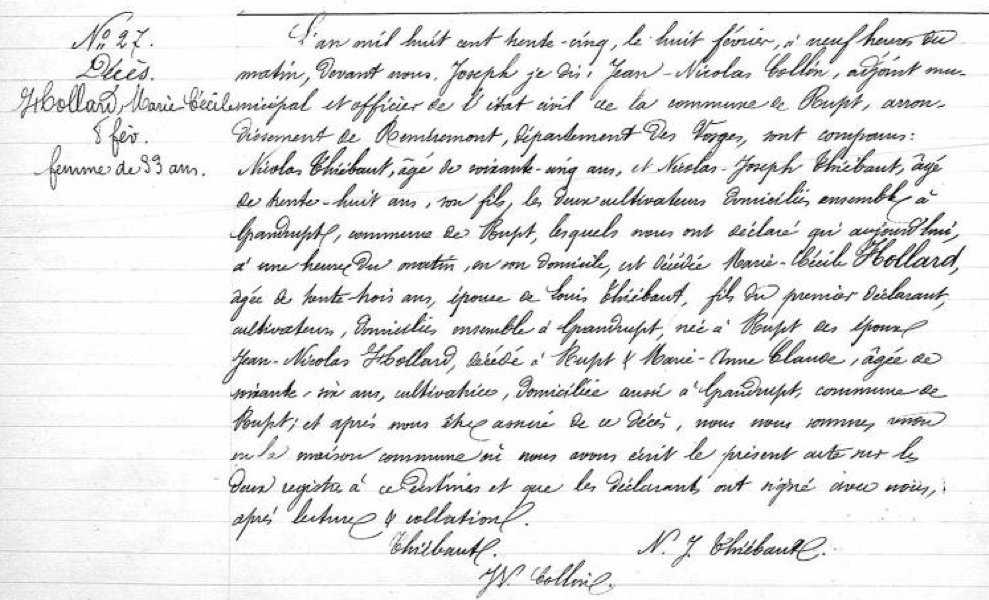 N° 27.
Décès.
Hollard, Marie-Cécile
8 fév.
femme de 33 ans.
L'an mil huit cent trente-cinq, le huit février, à neuf heures du
matin, Devant nous. Joseph je dis: Jean-Nicolas Collin, adjoint mu-
nicipal et officier de l'état civil de la commune de Rupt, arron-
dissement de Remiremont, département des Vosges, sont comparus:
Nicolas Thiébaut, âgé de soixante-cinq ans, et Nicolas-Joseph Thiébaut, âgé
de trente-huit ans, son fils, les deux cultivateurs domiciliés ensemble à
Grandrupt, commune de Rupt, lesquels nous ont déclaré qu'aujourd'hui,
à une heure du matin, en son domicile, est décédée Marie-Cécile Hollard,
âgée de trente-trois ans, épouse de Louis Thiébaut, fils du premier déclarant,
cultivateurs, domiciliés ensemble à Grandrupt, née à Rupt des époux
Jean-Nicolas Hollard, décédé à Rupt & Marie-Anne Claude, âgée de
soixante-six ans, cultivatrice, domiciliée aussi à Grandrupt, commune de
Rupt; et après nous être assuré de ce décès, nous nous sommes
en la maison commune où nous avons écrit le présent acte sur les
deux registres à ce destinés et que les déclarants ont signé avec nous,
après lecture & collation.
Thiébaut. N. J. Thiébaut.
JN. Collin.